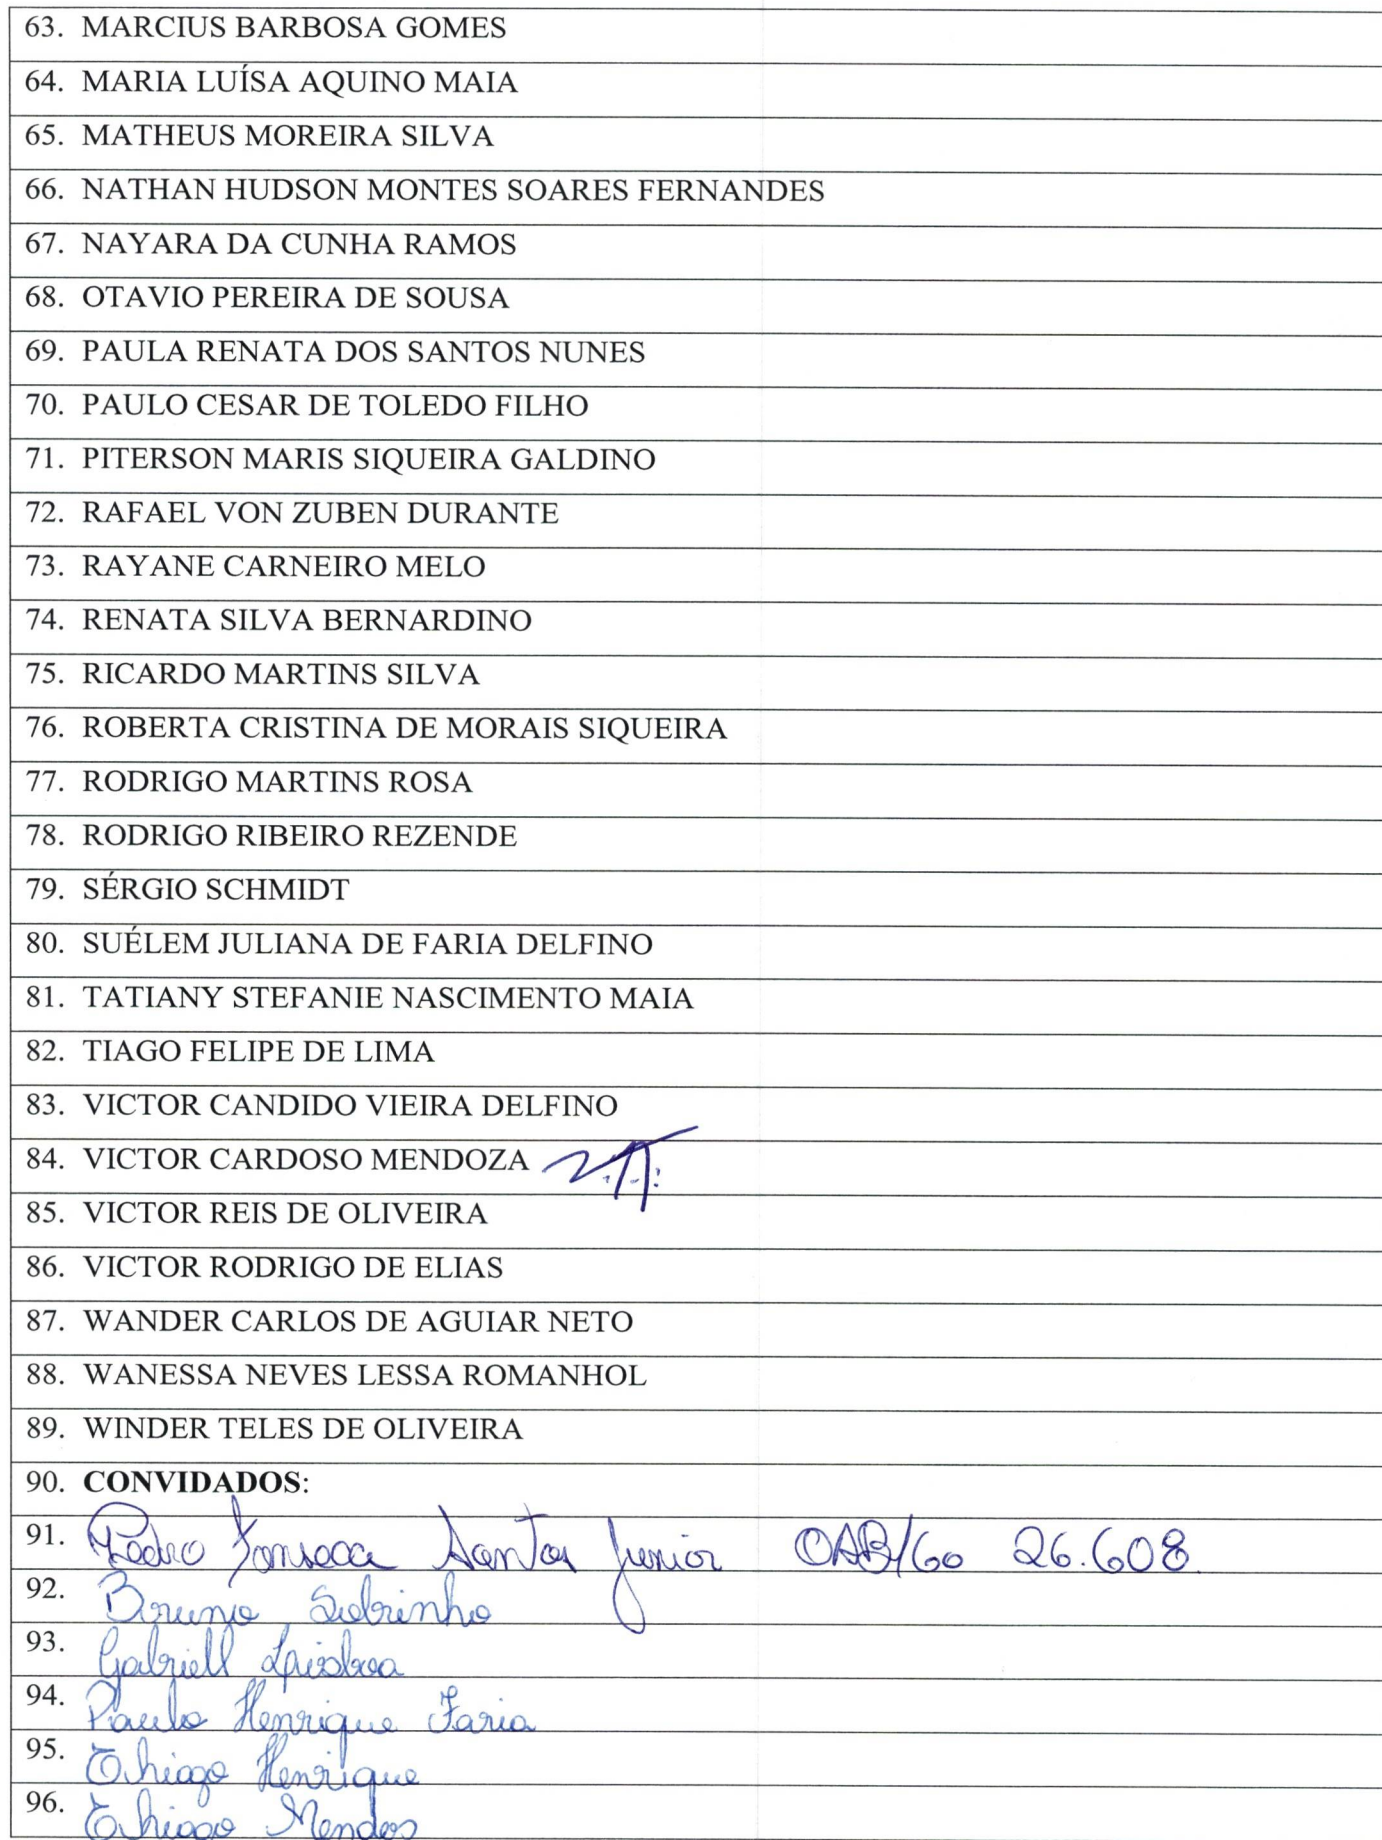 63. MARCIUS BARBOSA GOMES
64. MARIA LUÍSA AQUINO MAIA
65. MATHEUS MOREIRA SILVA
66. NATHAN HUDSON MONTES SOARES FERNANDES
67. NAYARA DA CUNHA RAMOS
68. OTAVIO PEREIRA DE SOUSA
69. PAULA RENATA DOS SANTOS NUNES
70. PAULO CESAR DE TOLEDO FILHO
71. PITERSON MARIS SIQUEIRA GALDINO
72. RAFAEL VON ZUBEN DURANTE
73. RAYANE CARNEIRO MELO
74. RENATA SILVA BERNARDINO
75. RICARDO MARTINS SILVA
76. ROBERTA CRISTINA DE MORAIS SIQUEIRA
77. RODRIGO MARTINS ROSA
78. RODRIGO RIBEIRO REZENDE
79. SÉRGIO SCHMIDT
80. SUÉLEM JULIANA DE FARIA DELFINO
81. TATIANY STEFANIE NASCIMENTO MAIA
82. TIAGO FELIPE DE LIMA
83. VICTOR CANDIDO VIEIRA DELFINO
84. VICTOR CARDOSO MENDOZA
85. VICTOR REIS DE OLIVEIRA
86. VICTOR RODRIGO DE ELIAS
87. WANDER CARLOS DE AGUIAR NETO
88. WANESSA NEVES LESSA ROMANHOL
89. WINDER TELES DE OLIVEIRA
90. CONVIDADOS:
91. Pedro Fonseca Santos Junior OAB/GO 26.608
92. Bruno Sobrinho
93. Gabriell
94. Paulo Henrique Faria
95. Thiago Henrique
96. Thiago Mendes